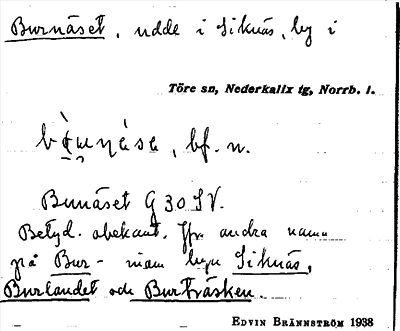 Burnäset, udde i Siknäs, by i
Töre sn, Nederkalix tg, Norrb. l.
bf. n.
Burnäset G 30 SV.
Betyd. obekant. Jfr andra namn
på Bur- inom byn Siknäs,
Burlandet och Burträsken.
EDVIN BRÄNNSTRÖM 1938